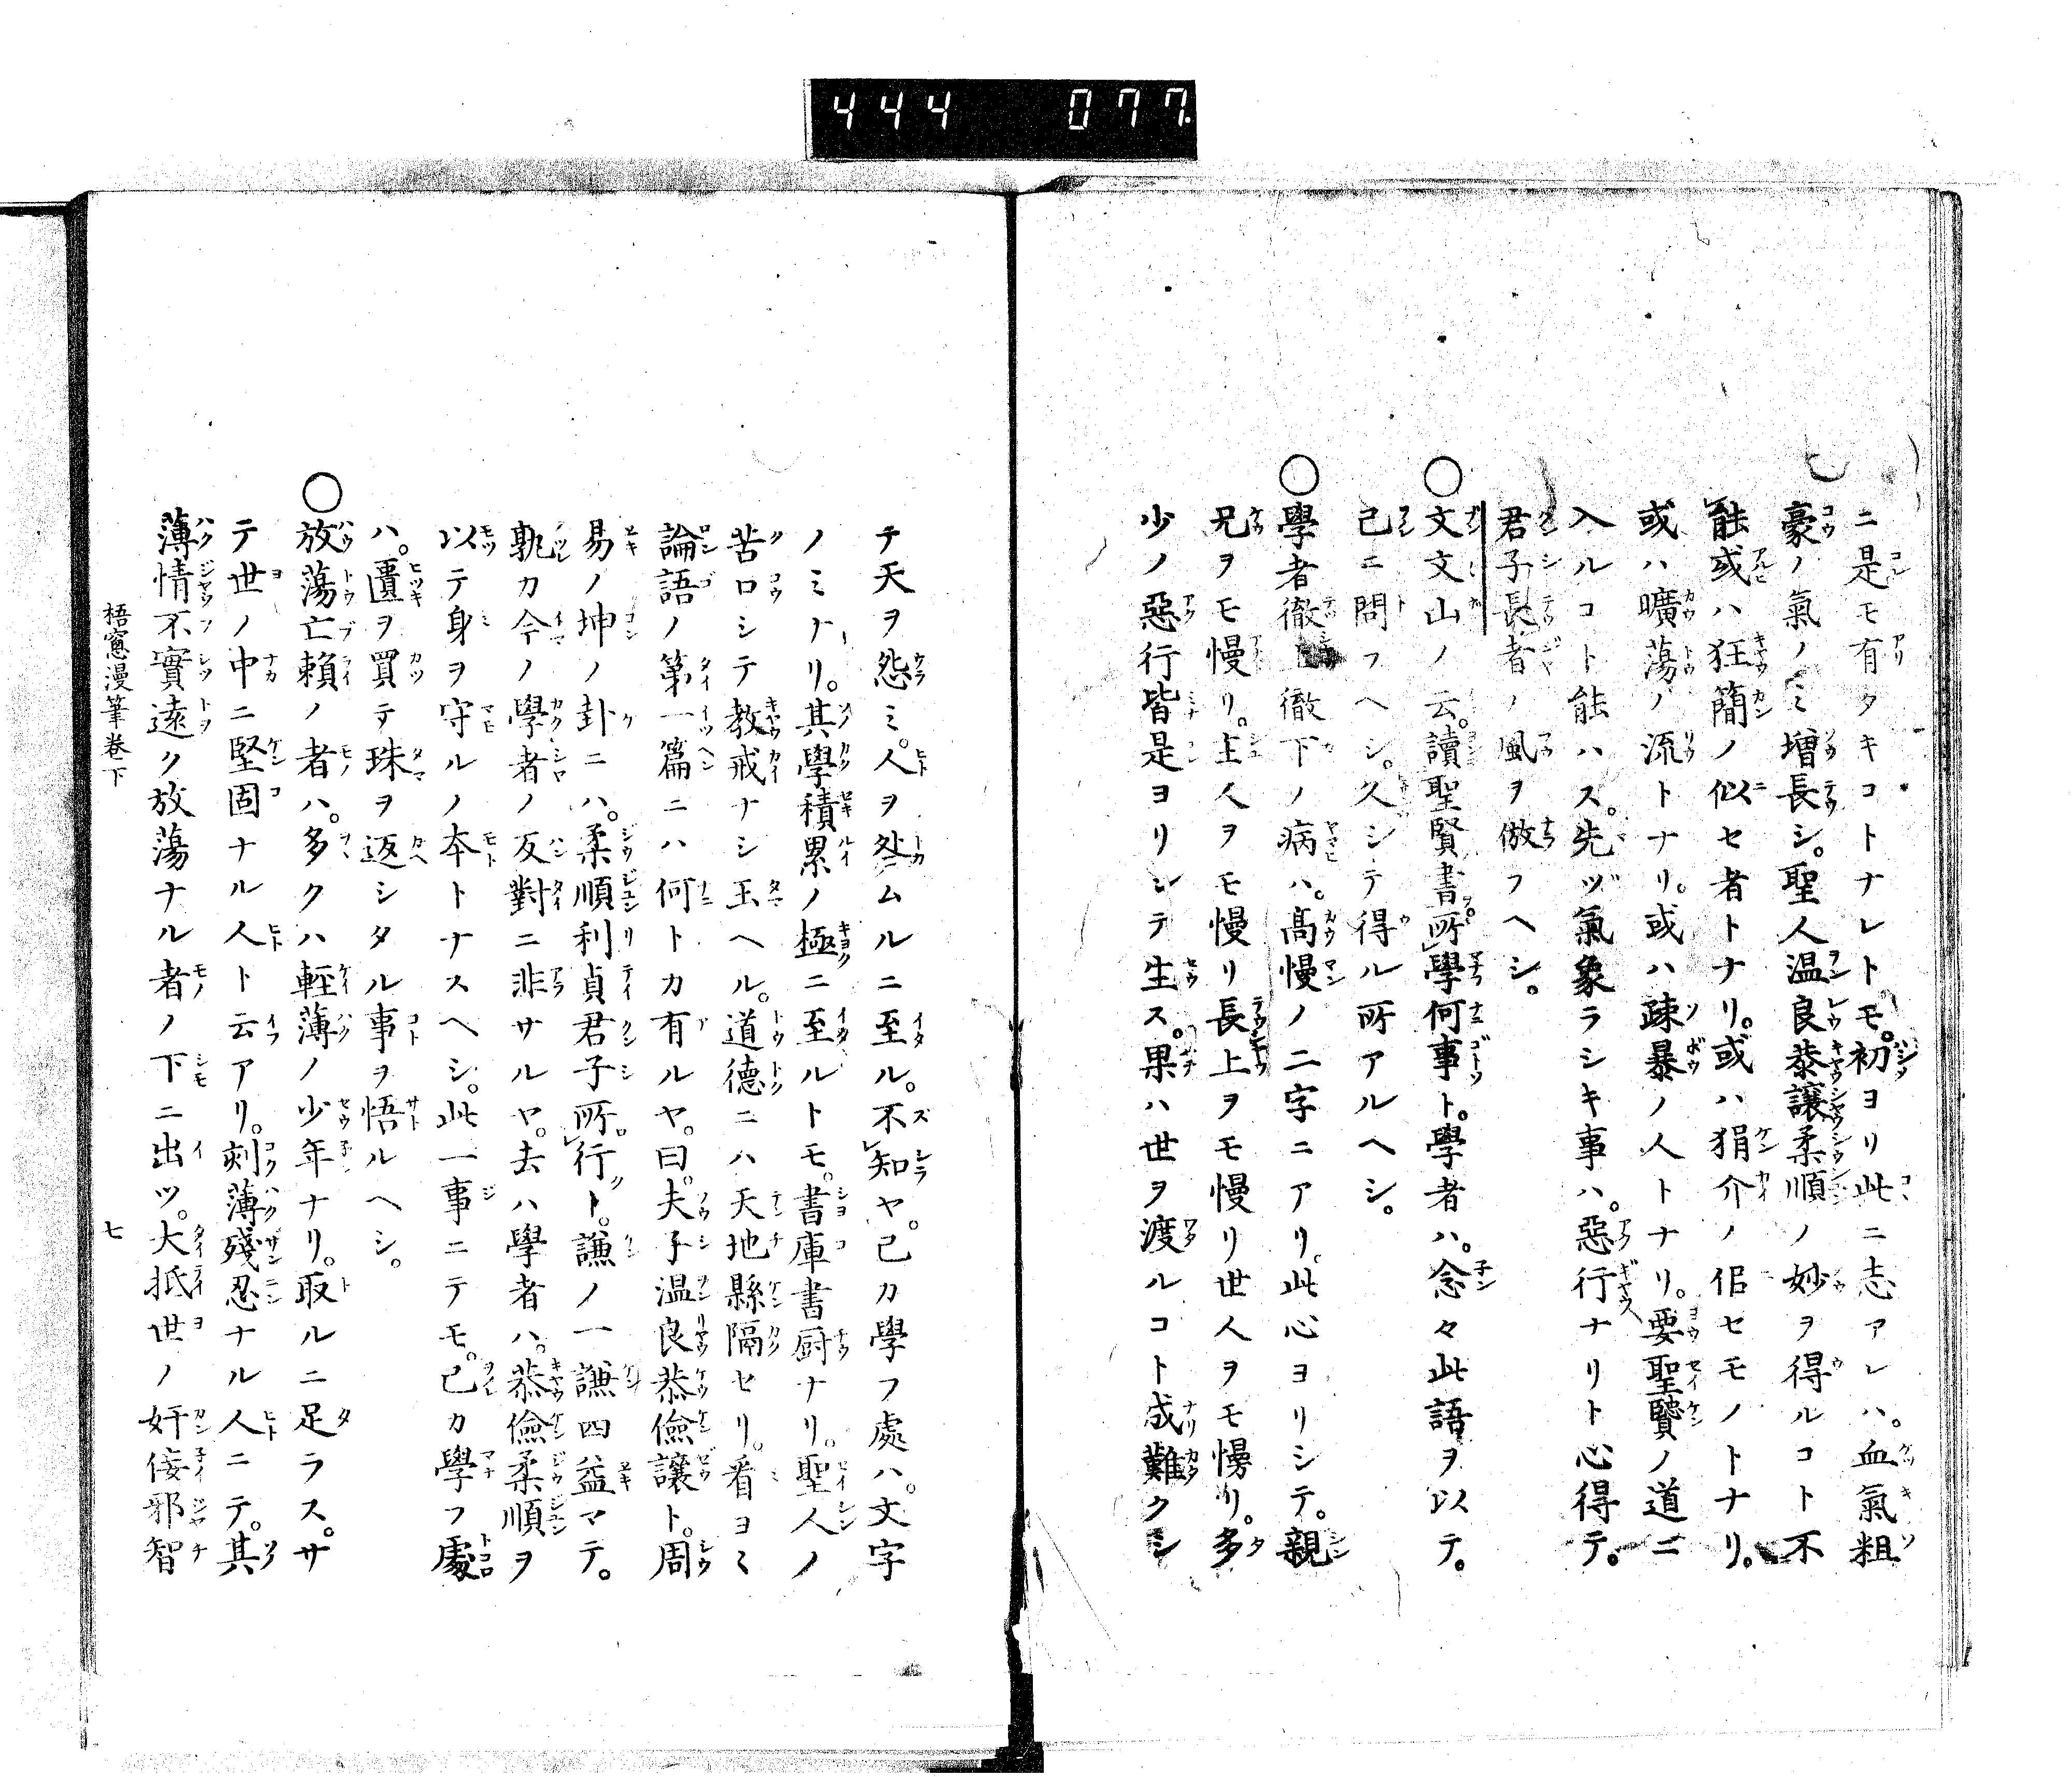 444 077
ニ是モ有タキコトナレトモ。初ヨリ此ニ志アレハ。血氣粗
豪ノ氣ノミ増長シ。聖人温良恭讓柔順ノ妙ヲ得ルコト不
能或ハ狂簡ノ似セ者トナリ。或ハ狷介ノ佀セモノトナリ。
或ハ曠蕩ノ流トナリ。或ハ疎暴ノ人トナリ。要聖賢ノ道ニ
入ルコト能ハス。先ヅ氣象ラシキ事ハ。惡行ナリト心得テ。
君子長者ノ風ヲ倣フヘシ。
○文文山ノ云。讀聖賢書。所學何事ト。學者ハ。念々此語ヲ以テ。
己ニ問フヘシ。久シテ得ル所アルヘシ。
○學者徹上徹下ノ病ハ。高慢ノ二字ニアリ。此心ヨリシテ。親
兄ヲモ慢リ。主人ヲモ慢リ長上ヲモ慢リ世人ヲモ慢リ。多
少ノ惡行皆是ヨリシテ生ス。果ハ世ヲ渡ルコト成難クシ
テ天ヲ怨ミ。人ヲ尤ムルニ至ル。不知ヤ。己カ學フ處ハ。文字
ノミナリ。其學積累ノ極ニ至ルトモ。書庫書厨ナリ。聖人ノ
苦口シテ教戒ナシ玉ヘル。道德ニハ天地縣隔セリ。看ヨミ
論語ノ第一篇ニハ何トカ有ルヤ。曰。夫子温良恭儉讓ト。周
易ノ坤ノ卦ニハ。柔順利貞君子所。行ト。謙ノ一謙四益マテ。
孰カ今ノ學者ノ反對ニ非サルヤ。去ハ學者ハ。恭儉柔順ヲ
以テ身ヲ守ルノ本トナスヘシ。此一事ニテモ。己カ學フ處
ハ。匵ヲ買テ珠ヲ返シタル事ヲ悟ルヘシ。
○放蕩亡頼ノ者ハ。多クハ輕薄ノ少年ナリ。取ルニ足ラス。サ
テ世ノ中ニ堅固ナル人ト云アリ。刻薄殘忍ナル人ニテ。其
薄情不實遠ク放蕩ナル者ノ下ニ出ツ。大抵世ノ奸佞邪智
梧窻漫筆卷下 七